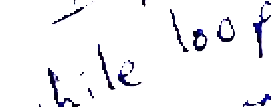 hile loop